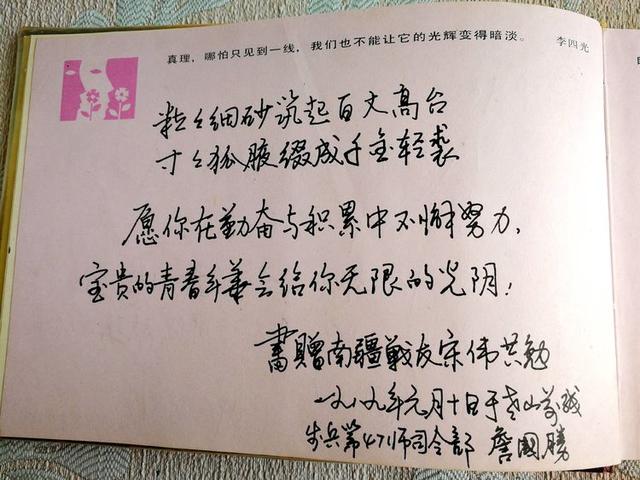 真理，哪怕只见到一线，我们也不能让它的光辉变得暗淡。 李四光
粒々细砂筑起百丈高台
寸々狐腋缀成千金轻裘
愿你在勤奋与积累中不懈努力，
宝贵的青春年华会给你无限的光阴！
書贈南疆戰友宋伟共勉
一九八九年元月十日于老山前线
步兵第47师司令部 詹國勝